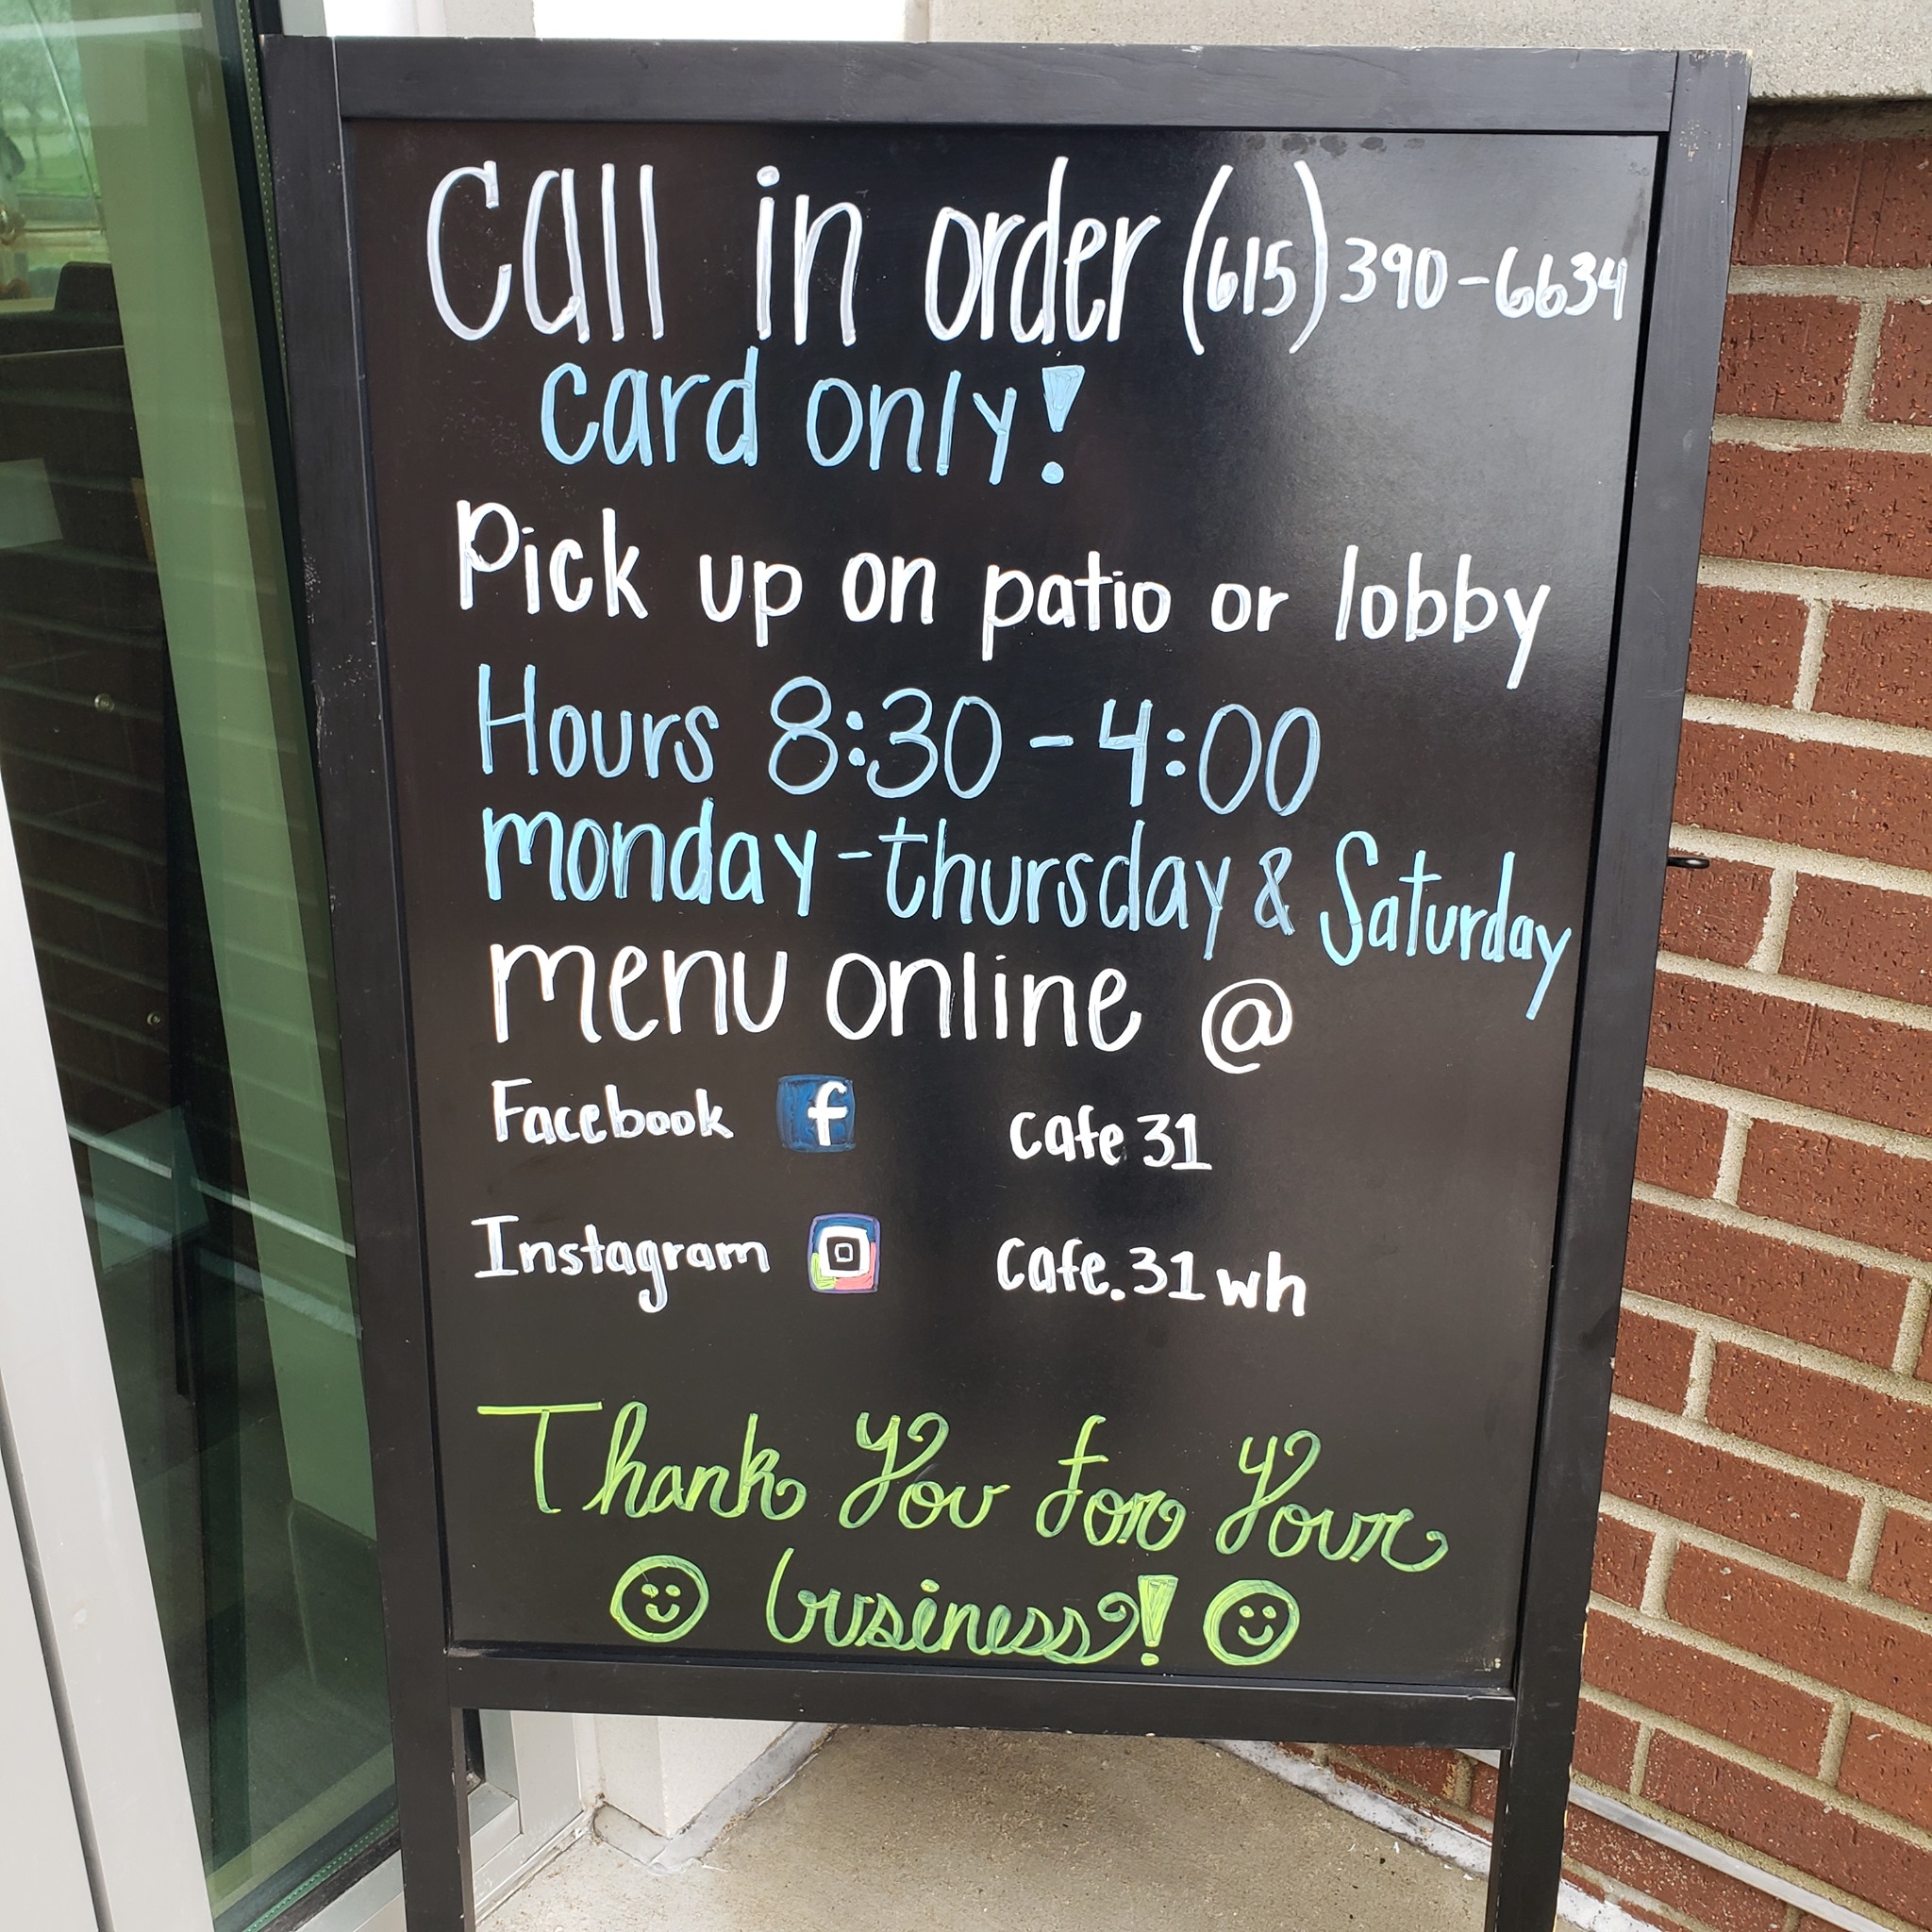 Call in order (615) 390-6634
card only!
Pick up on patio or lobby
Hours 8:30-4:00
monday-thursday & Saturday
menu online @
Facebook f cafe 31
Instagram cafe.31wh
Thank You for Your
business!